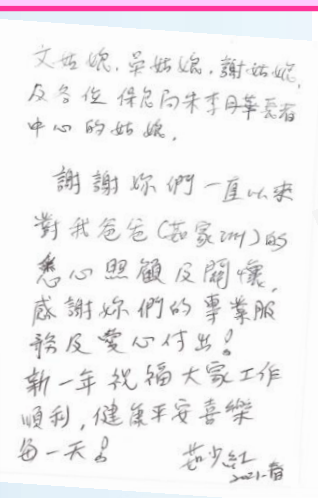 文姑娘、吳姑娘、謝姑娘,
及各位保良局朱李月華長者
中心的姑娘,
謝謝妳們一直以來
對我爸爸(茹家    )的
悉心照顧及關懷,
感謝妳們的專業服
務及愛心付出!
新一年祝福大家工作
順利,健康平安喜樂
每一天!
茹少紅
2021.春